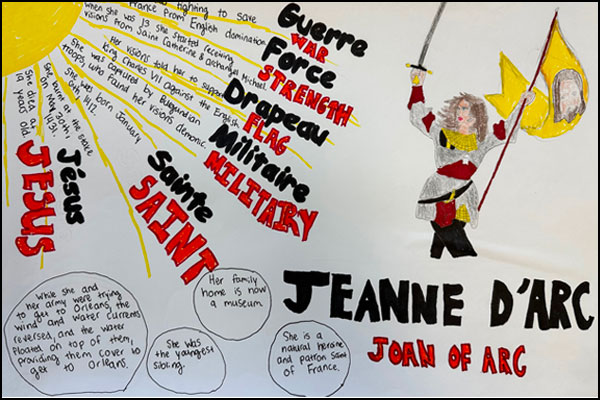 fighting to save
France from English domination.
when she was 13 she started receiving
visions from Saint Catherine & archangel Michael.
Her visions told her to support
King Charles VII against the English
She was captured by
troops, who found her visions demonic.
She was born January
6th, 1412.
She burnt at the stake
on May 30th,
1431.
She died at
19 years old
Guerre
WAR
Force
STRENGTH
Drapeau
FLAG
Militaire
MILITAIRY
Sainte
SAINT
Jésus
JESUS
While she and
her army were trying
to get to Orleans, the
wind and water currents
reversed, and the water
floated on top of them,
providing them cover to
get to Orleans.
She was
the youngest
sibling.
Her family
home is now
a museum.
She is a
natural heroine
and patron Saint
of France.
JEANNE D'ARC
JOAN OF ARC